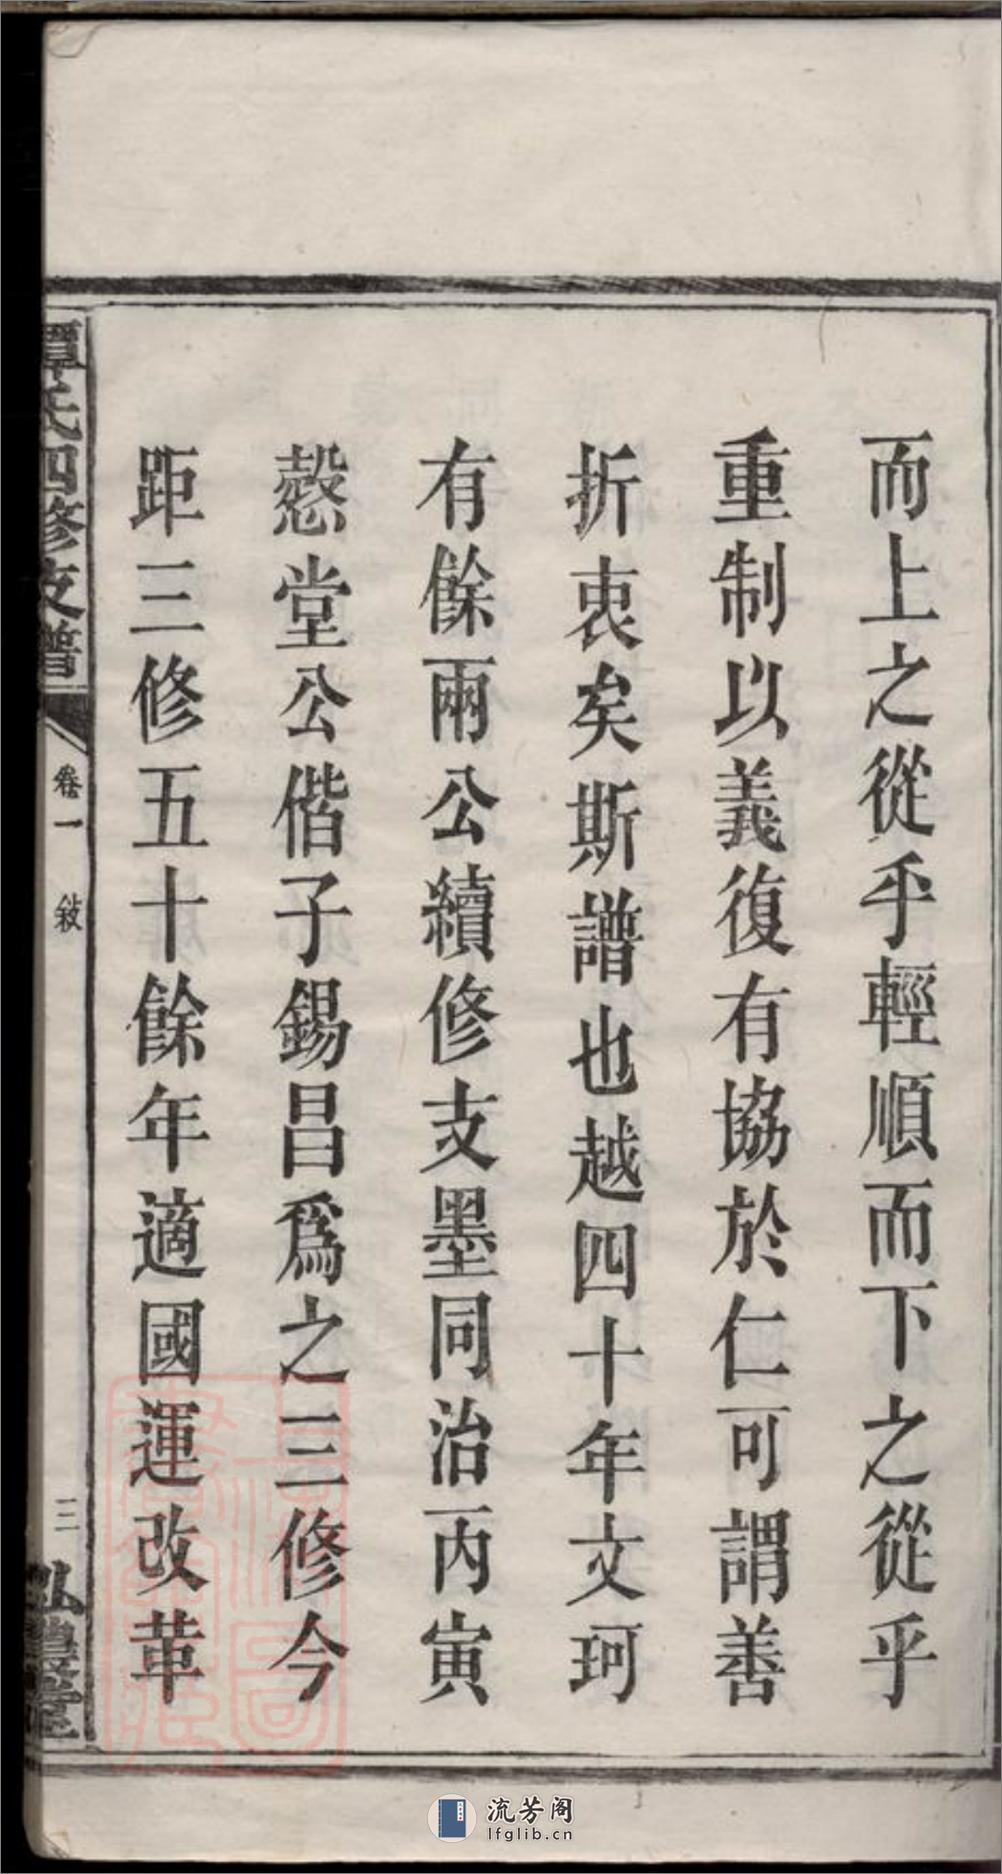 而上之從乎輕順而下之從乎
重制以義復有協於仁可謂善
折衷矣斯譜也越四十年文珂
有餘兩公續修支墨同治丙寅
慤堂公偕子錫昌爲之三修今
距三修五十餘年適國運改革
譚氏四修支譜
卷一 敍
三
弘農堂
流芳阁
lfglib.cn